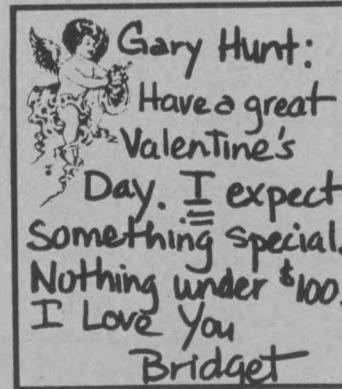 Gary Hunt:
Have a great
Valentine's
Day. I expect
Something special.
Nothing under $100.
I Love You
Bridget